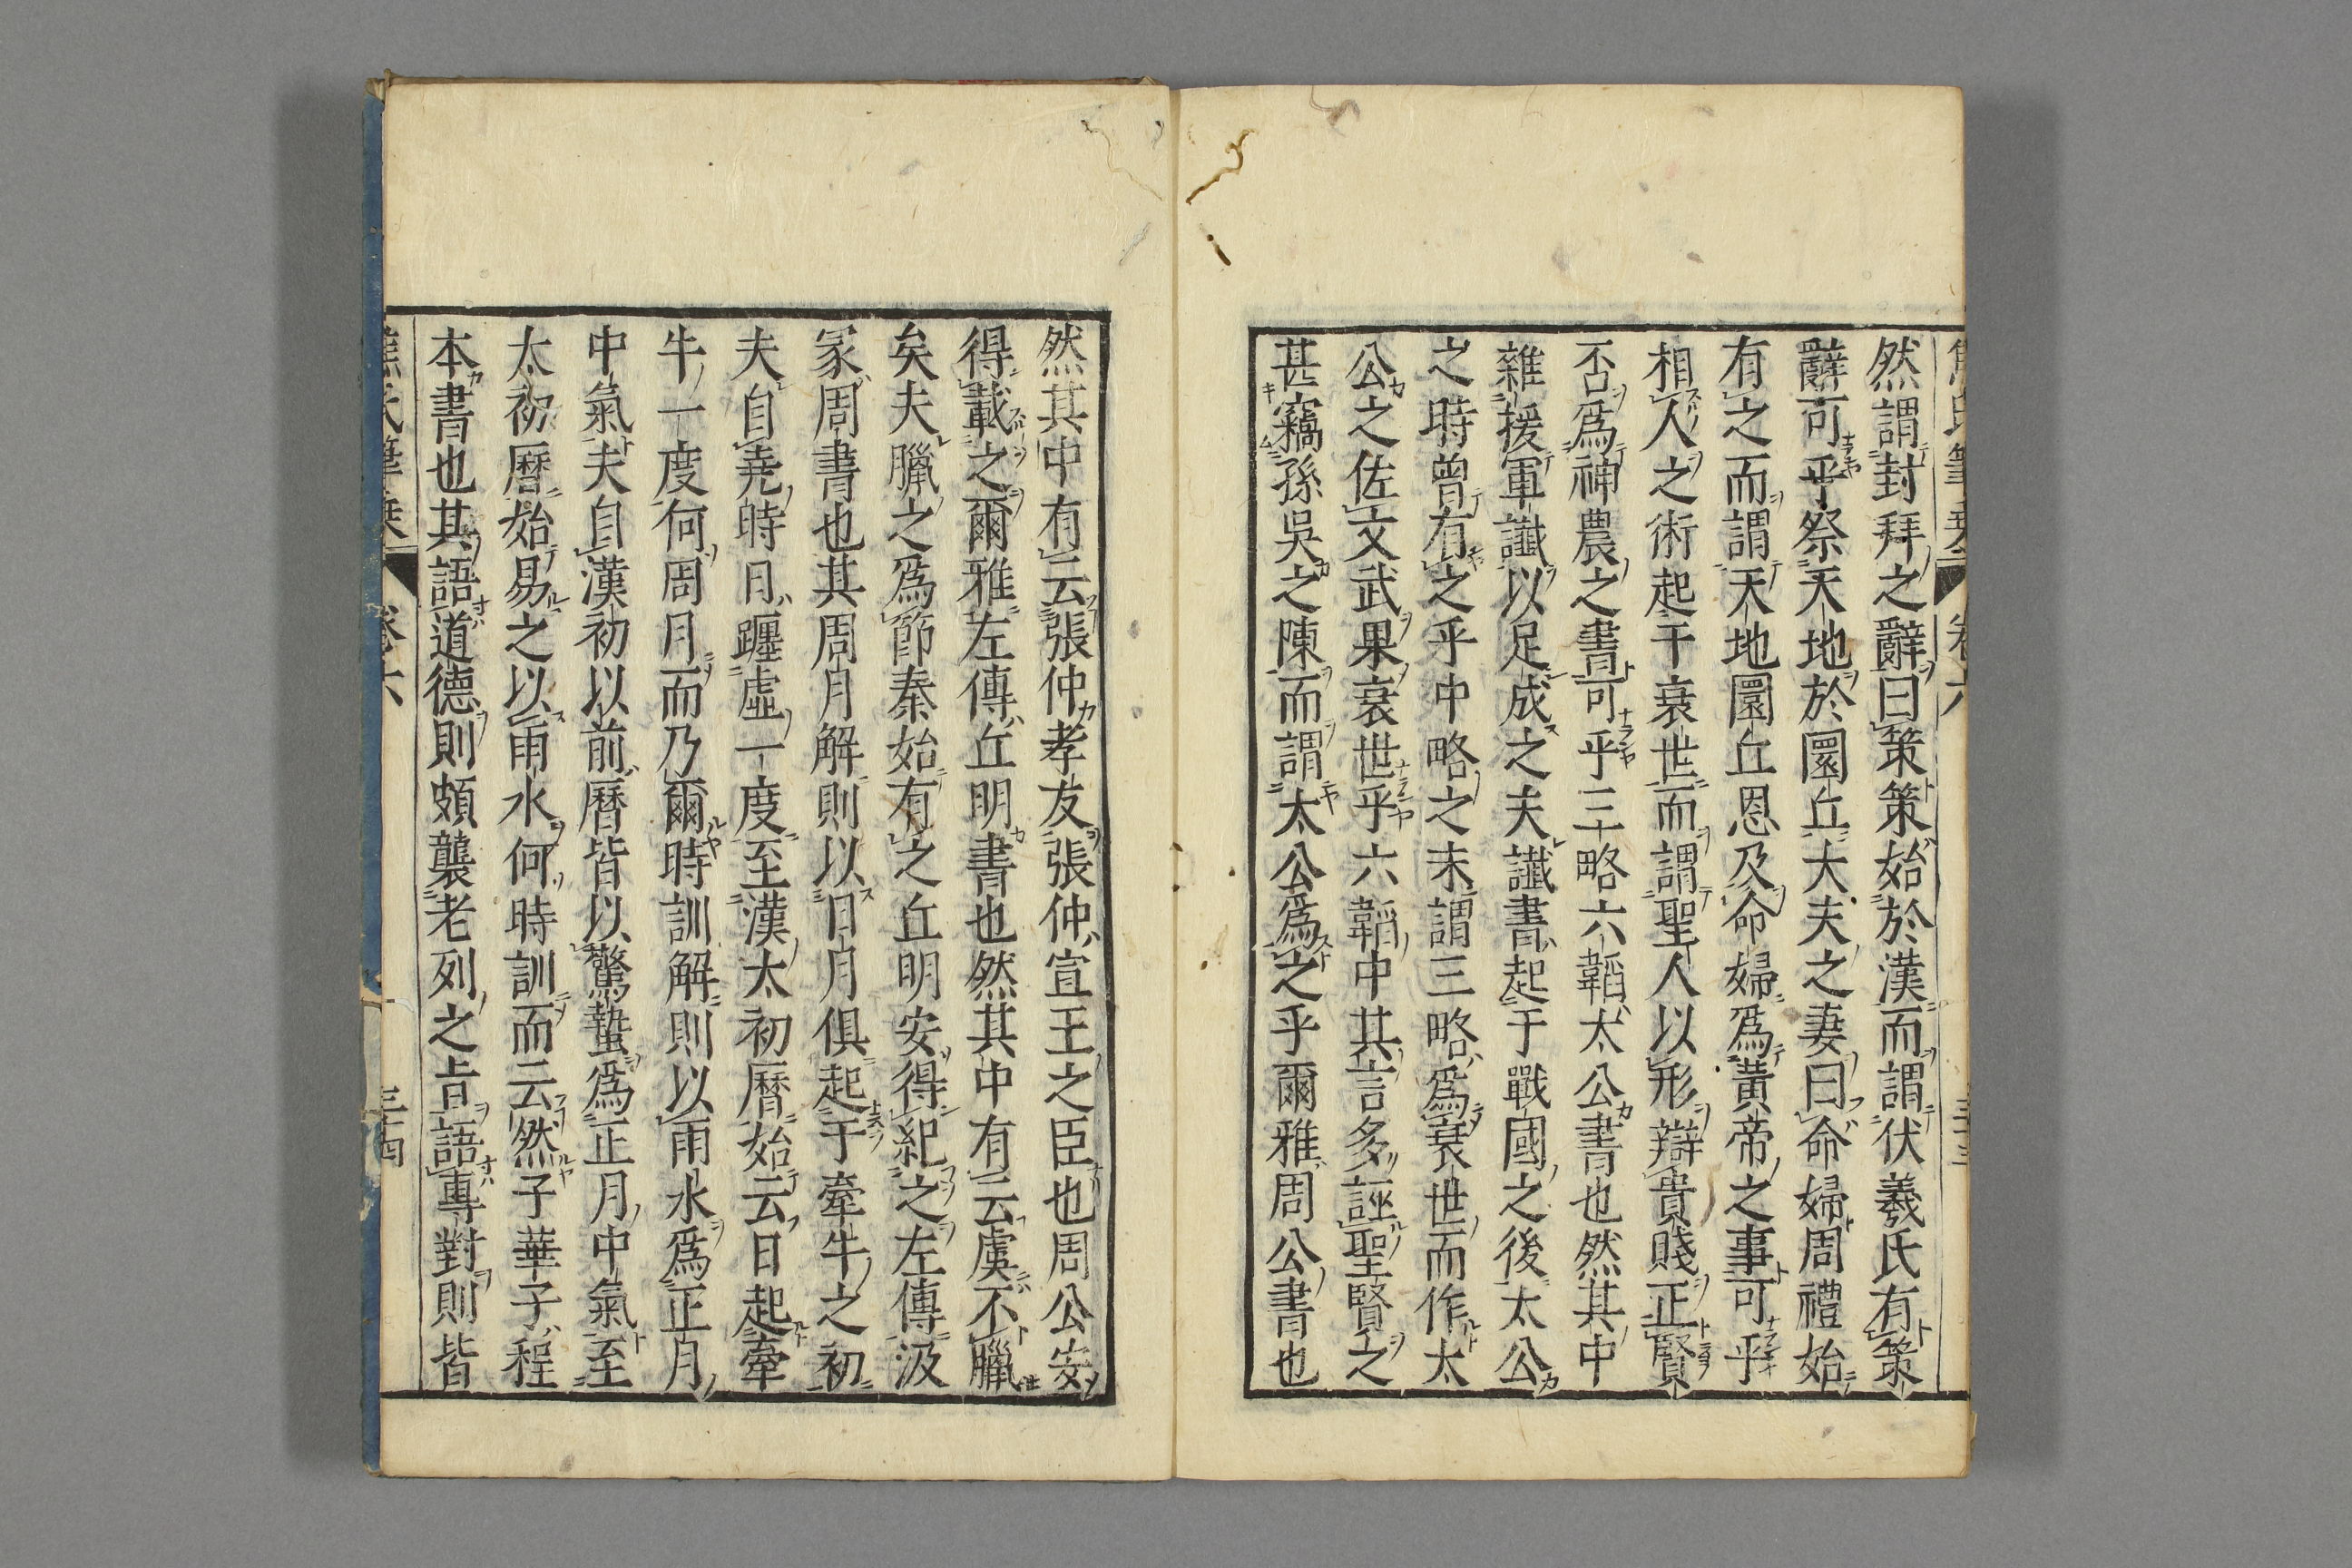 然謂封拜之辭曰策策始於漢而謂伏羲氏有策
辭可乎祭天地於圜丘大夫之妻曰命婦周禮始
有之而謂天地圜丘恩及命婦爲黃帝之事可乎
相人之術起于衰世而謂聖人以形辯貴賤正賢
否爲神農之書可乎三略六韜太公書也然其中
雜援軍讖以足成之夫讖書起于戰國之後太公
之時曾有之乎中略之末謂三略爲衰世而作太
公之佐文武果衰世乎六韜中其言多誣聖賢之
甚竊孫吳之陳而謂太公爲之乎爾雅周公書也
卷六
三十三
然其中有云張仲孝友張仲宣王之臣也周公安
得載之爾雅左傳丘明書也然其中有云虞不臘
矣夫臘之爲節秦始有之丘明安得紀之左傳汲
冢周書也其周月解則以日月俱起于牽牛之初
夫自堯時日躔虛一度至漢太初曆始云日起牽
牛一度何周月而乃爾時訓解則以雨水爲正月
中氣夫自漢初以前曆皆以驚蟄爲正月中氣至
太初曆始易之以雨水何時訓而云然子華子程
本書也其語道德則頗襲老列之旨語專對則皆
焦氏筆乘
卷六
三十四